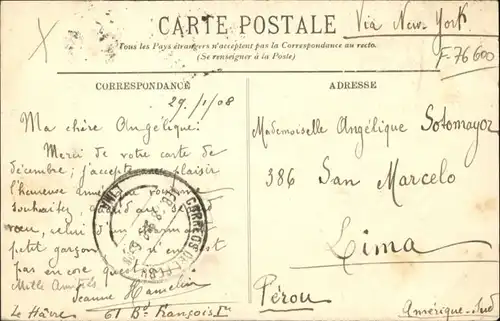 CARTE POSTALE
Via New-York
Tous les Pays étrangers n'acceptent pas la Correspondance au recto.
(Se renseigner à la Poste)
F-76600
CORRESPONDANCE
ADRESSE
29/1/08
Ma chère Angélique:
Merci de votre carte de
décembre; j'accepte avec plaisir
l'heureuse année que vous me
souhaitez; quand au
vœu, celui d'un
petit garçon n'en est
pas encore question
Mille Amitiés
Jeanne Hamelin
Le Hâvre 61 Bd François Ier
Mademoiselle Angélique Sotomayor
386 San Marcelo
Lima
Pérou
Amérique-Sud
CORREOS
LIMA